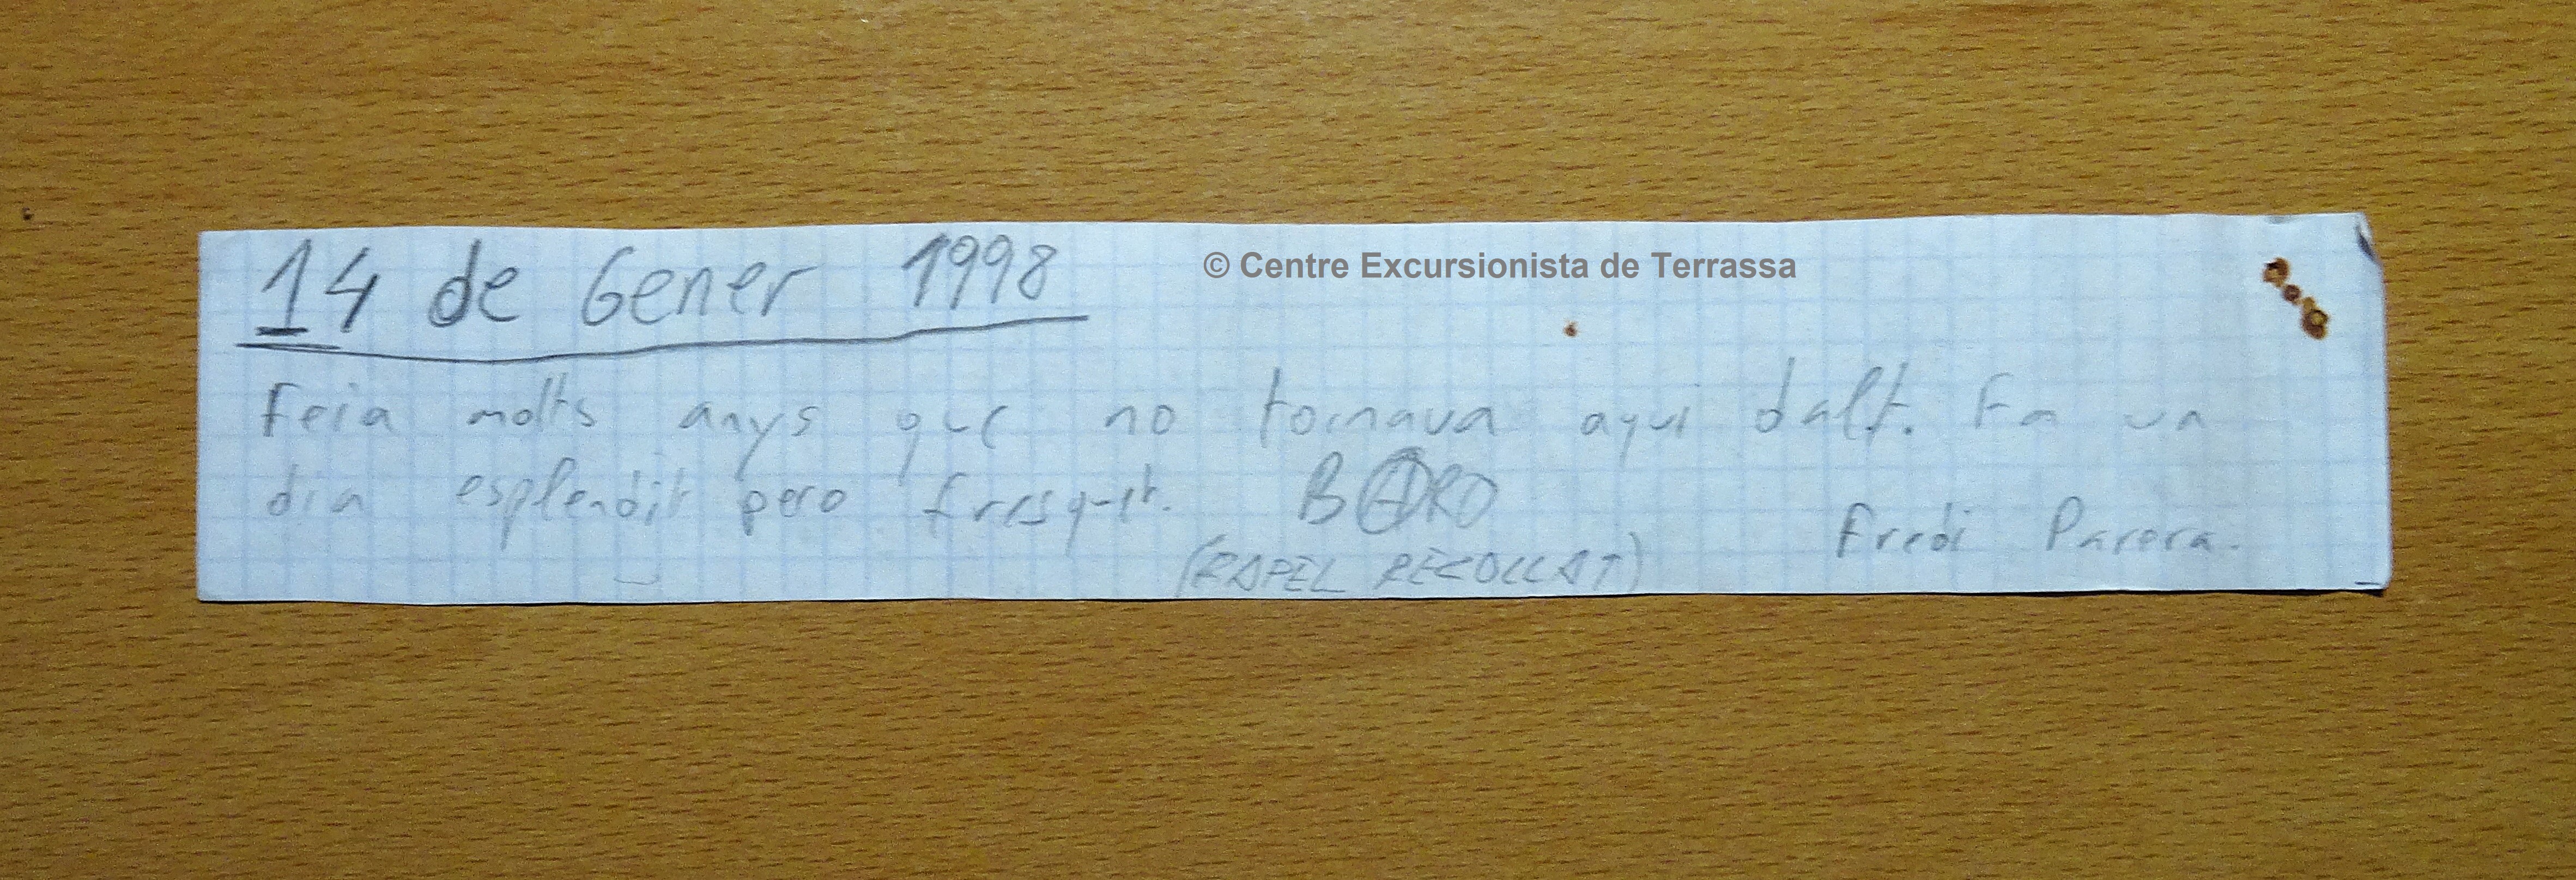 14 de Gener 1998
© Centre Excursionista de Terrassa
Feia molts anys que no tornava aqui dalt. Fa un
dia esplendit pero fresquet. BARO
(RAPEL RECOLLAT) Fredi Parera.